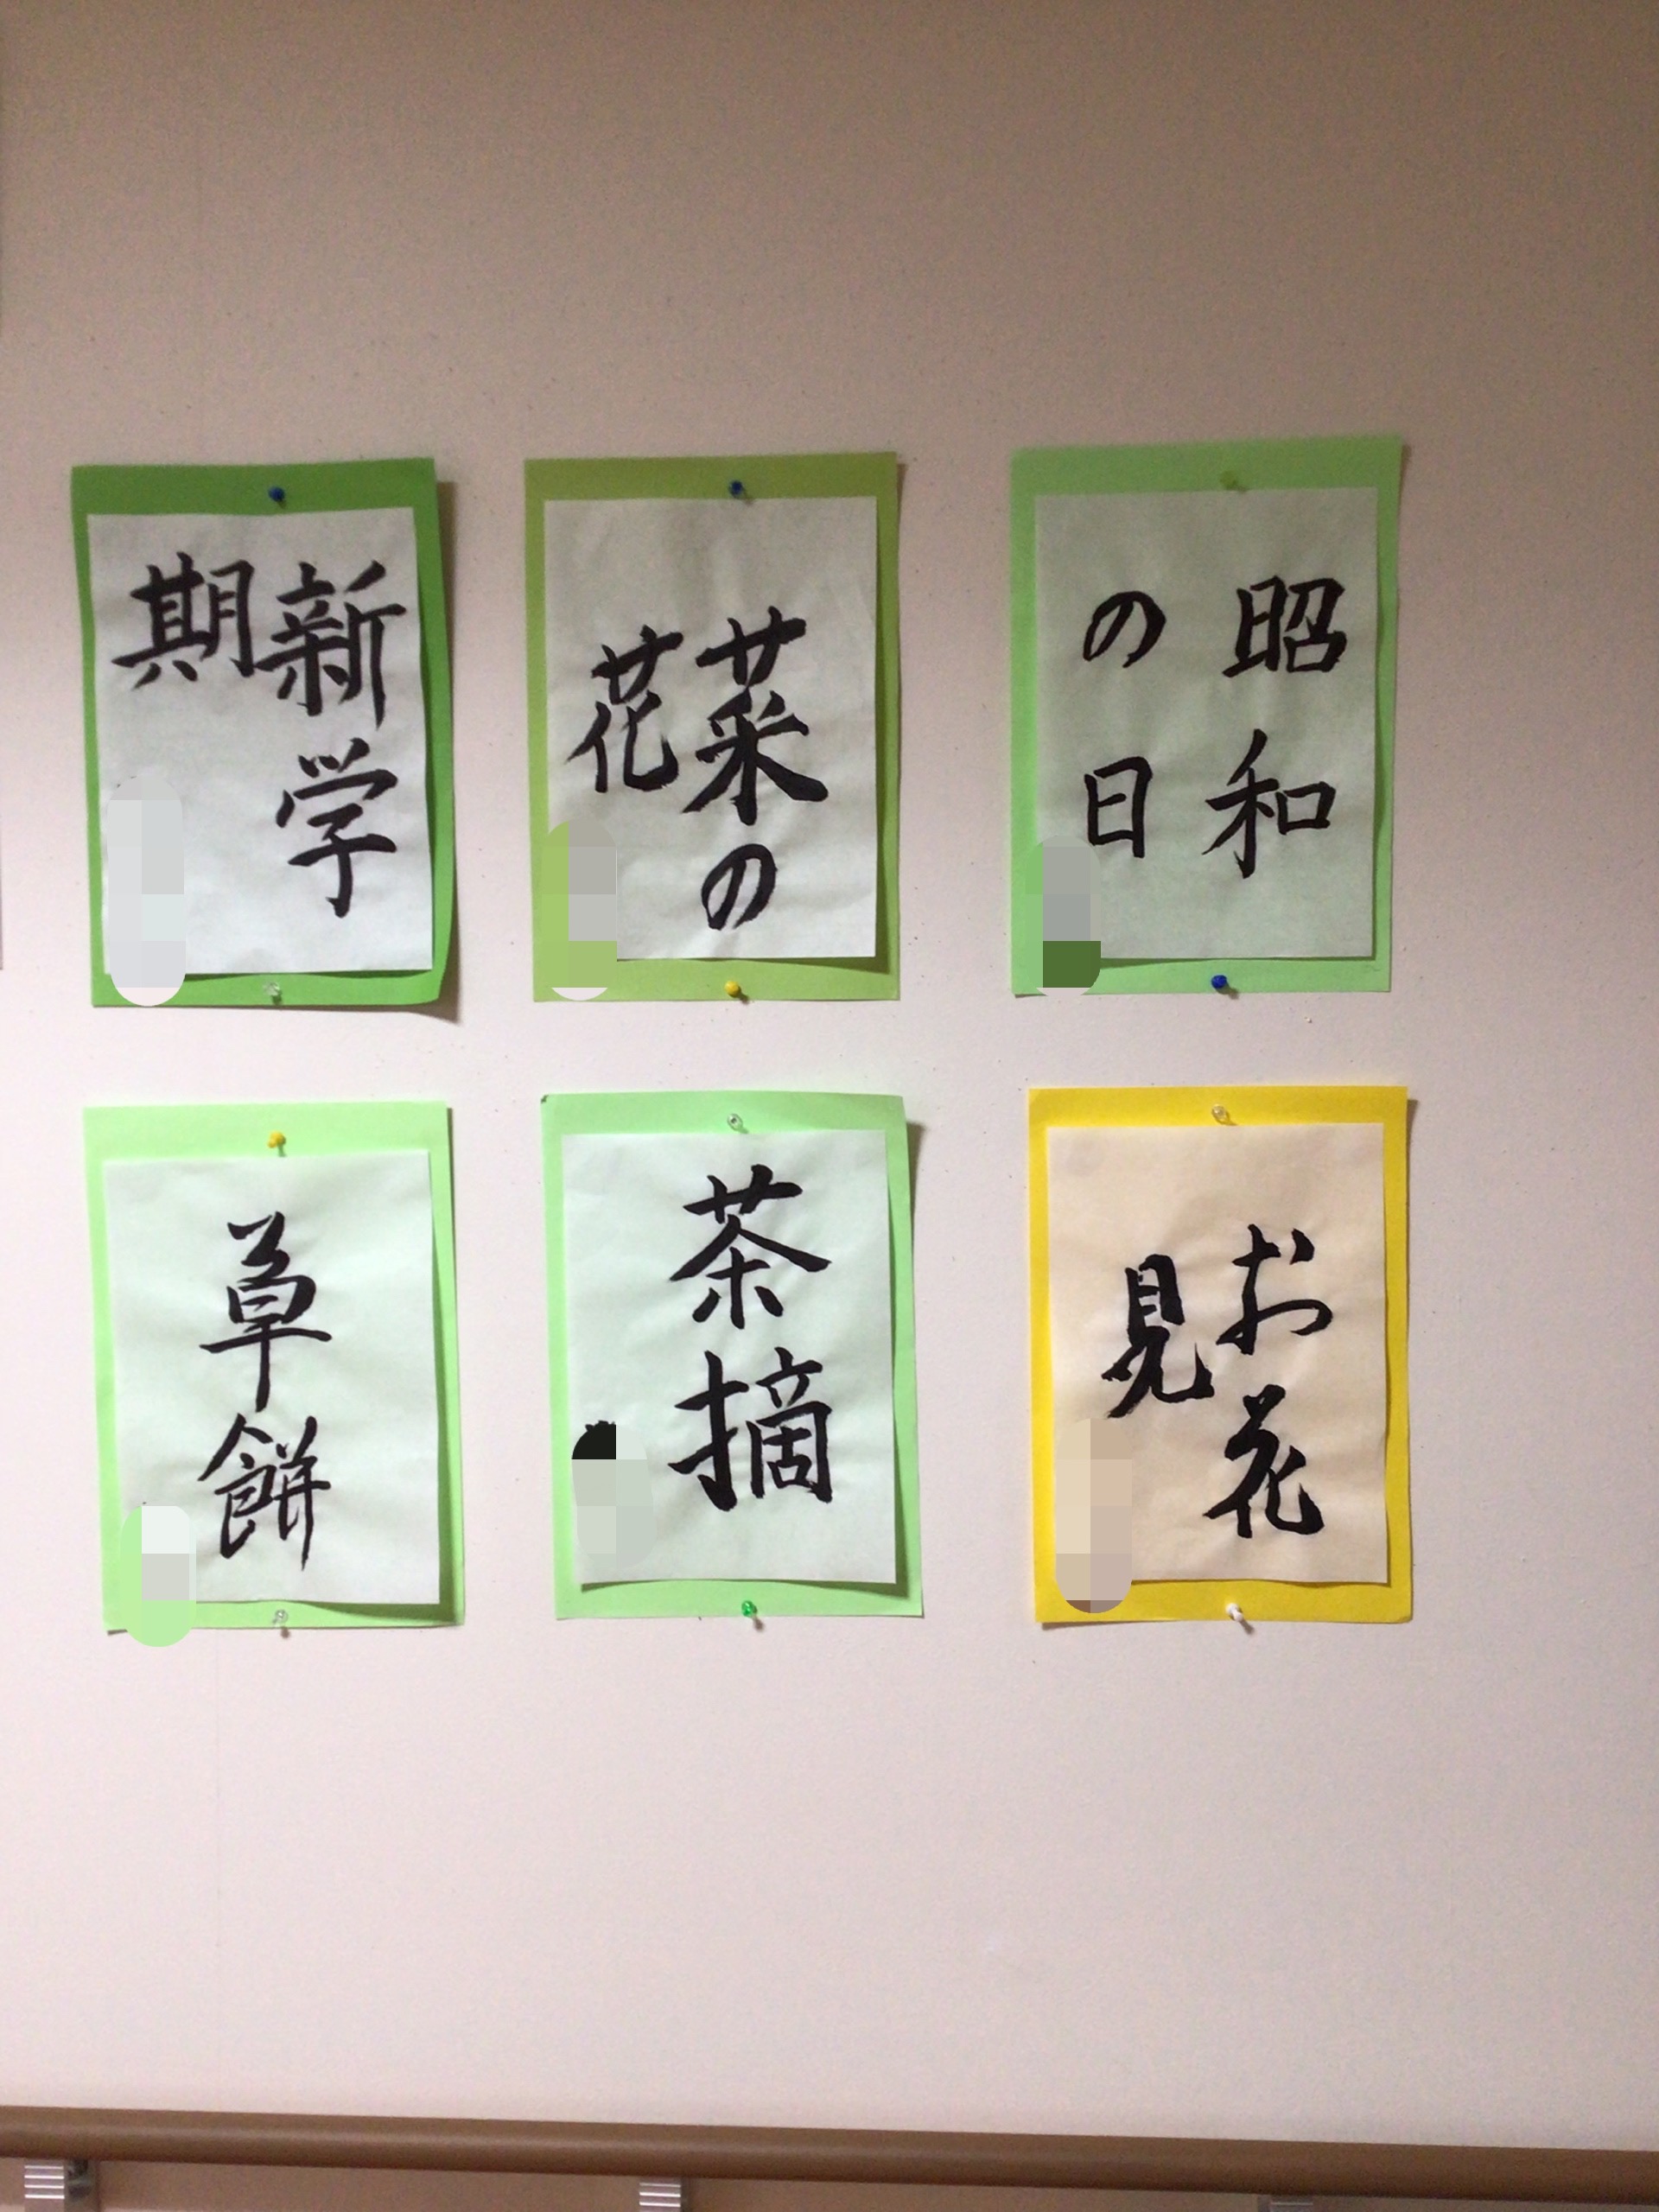 新学
期
菜の
花
昭和
の日
草餅
茶摘
お花
見